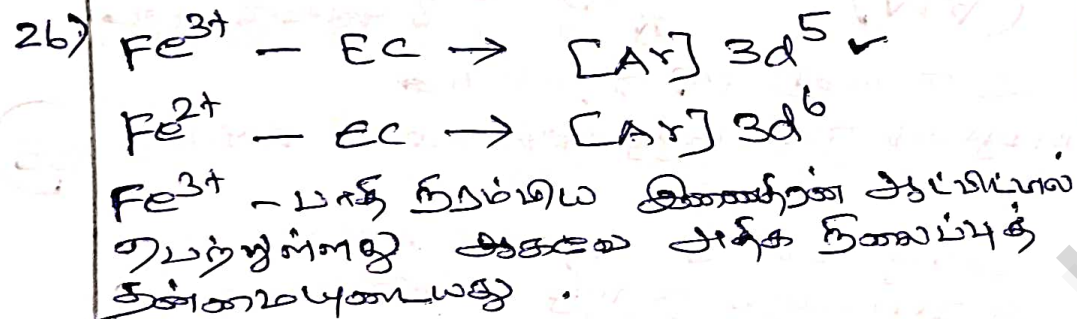 26) Fe³⁺ – EC → [Ar] 3d⁵ ✓
Fe²⁺ – EC → [Ar] 3d⁶
Fe³⁺ – பாதி நிரம்பிய இணைதிறன் ஆர்பிட்டால்
பெற்றுள்ளது ஆகவே அதிக நிலைப்புத்
தன்மையுடையது .